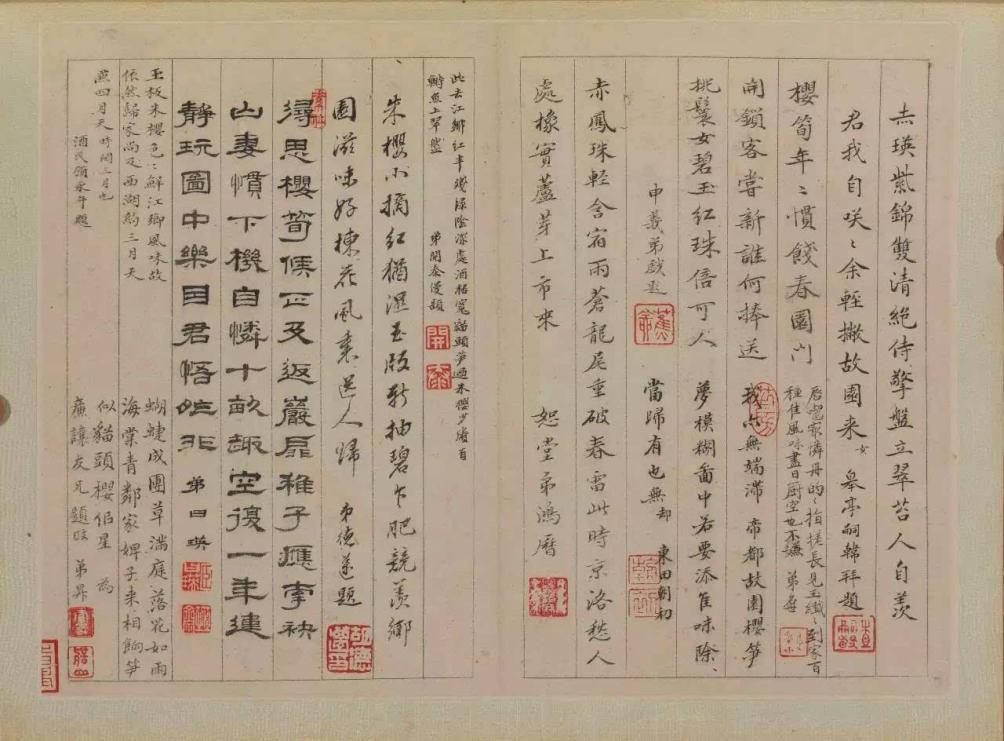 赤瑛紫錦雙清絶侍擎盤立翠苔人自羨
君我自咲〻余輕撇故園来 皋亭嗣韓拜題
櫻筍年〻慣餞春園門
開鎖客嘗新誰何捧送
挑鬟女碧玉紅珠倍可人
申義弟戲題
家憐丹的〻指搓長見玉纖〻到家百
種佳風味盡日厨空也不嫌 弟每
我亦無端滞 帝都故園櫻笋
夢模糊畨中若要添佳味除
當歸有也無却 東田朝初
赤鳳珠輕含宿雨蒼龍尾重破春雷此時京洛愁人
處橡實蘆芽上市來 恕堂弟鴻曆
此去江鄉紅半殘綠陰深處酒杯寬貓頭笋過朱櫻少猶有
鰣魚上翠盤 弟開泰漫題
開泰
朱櫻小摘紅猶濕玉版新抽碧乍肥競羨鄉
園滋味好楝花風裏送人歸 弟德邁題
潯思櫻筍候正及返巖扉稚子應牽袂
山妻慣下機自憐十畝趣空復一年違
靜玩圖中樂因君悟昨非 弟日瑛
玉板朱櫻色〻鮮江鄉風味故
依然歸家尚及西湖約三月天
燕四月天 時閏三月也
酒民顧永年題
蝴蝶成團草滿庭落花如雨
海棠青鄰家婢子来相餉笋
似貓頭櫻侶星 為
廣讓友兄題照 弟昇